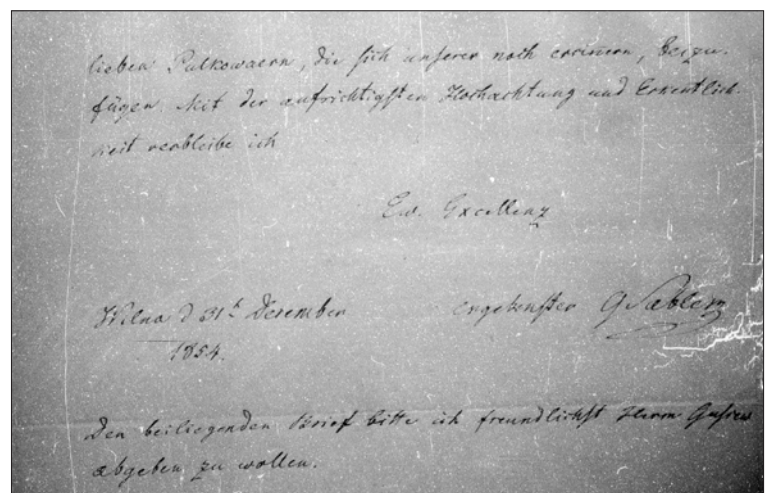 lieben Pulkowaern, die sich unserer noch erinnern, beizu-
fügen. Mit der aufrichtigsten Hochachtung und Erkentlich-
keit verbleibe ich
Ew. Excellenz
Wilna d 31t Dezember ergebenster G Sabler
1854.
Den beiliegenden Brief bitte ich freundlichst Herrn Gussew
abgeben zu wollen.